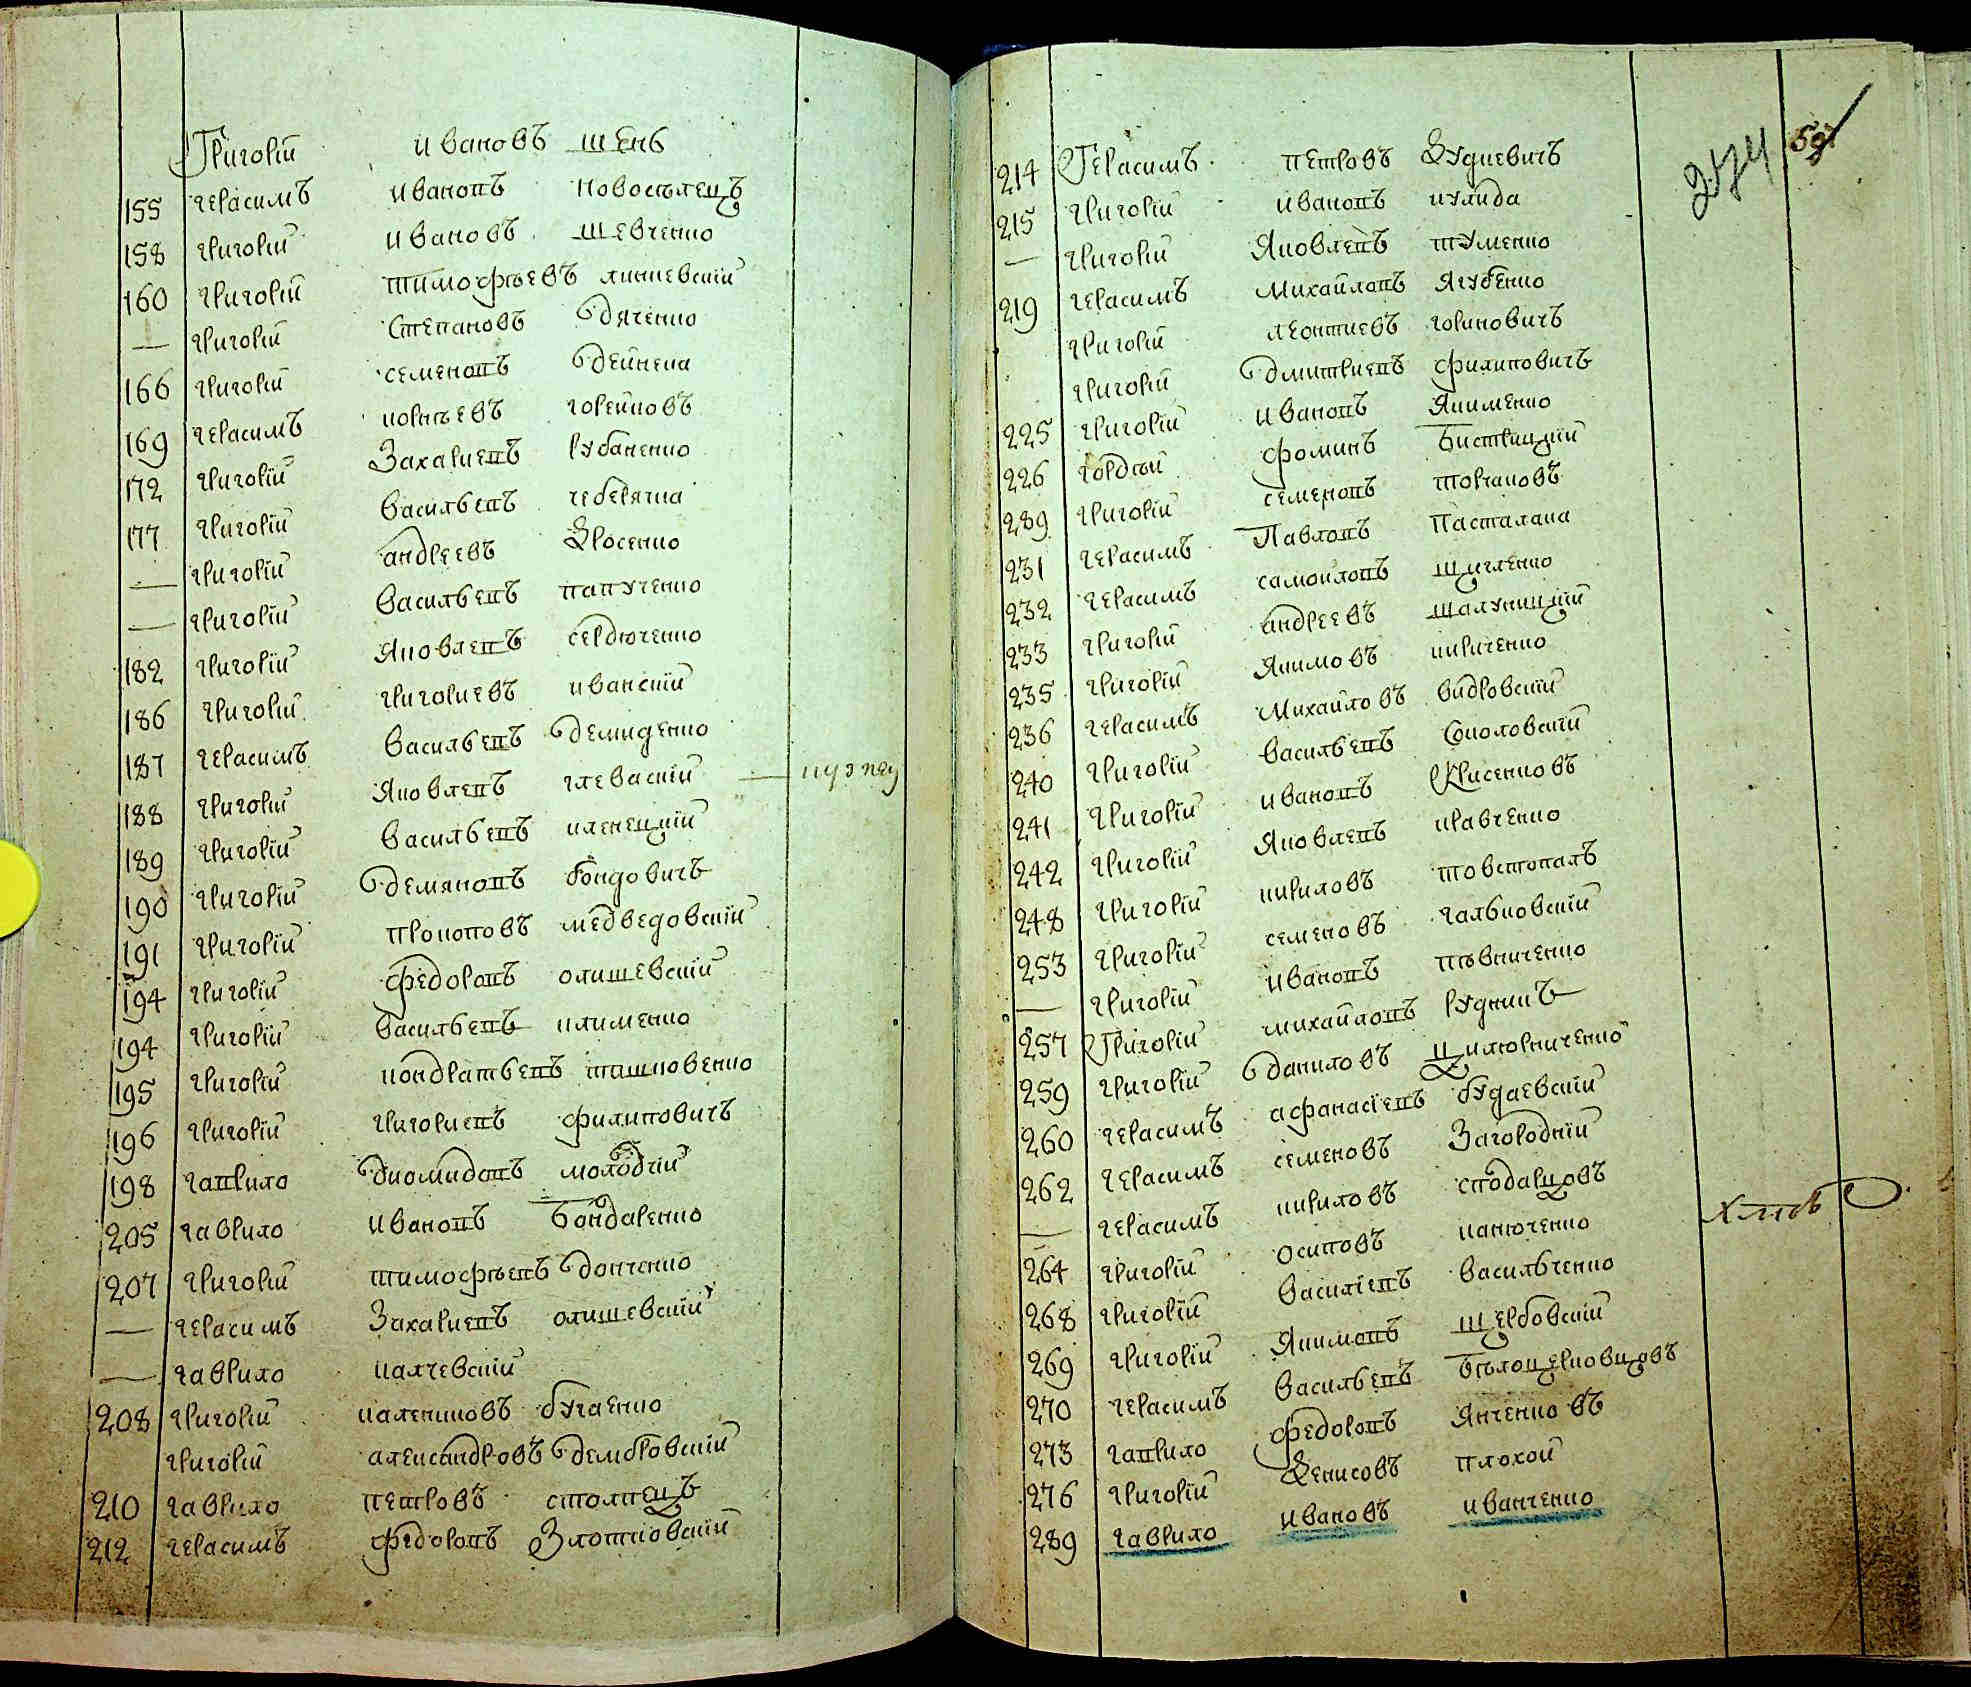 Григорій ивановъ шенъ
155 герасимъ ивановъ новоселецъ
158 григорій ивановъ шевченко
160 григорій тимофѣевъ линневскій
— григорій степановъ дяченко
166 григорій семеновъ дейнека
169 герасимъ корнѣевъ горейновъ
172 григорій захариевъ рубаненко
177 григорій васильевъ чеберячка
— григорій андреевъ Дросенко
— григорій васильевъ папученко
182 григорій яковлевъ сердюченко
186 григорій григориевъ иванскій
187 герасимъ васильевъ демиденко
188 григорій яковлевъ глеваскій
189 григорій васильевъ кленецкій
190 григорій демяновъ бондовичъ
191 григорій прокоповъ медведовскій
194 григорій федоровъ олишевскій
194 григорій васильевъ клименко
195 григорій кондратьевъ ташковенко
196 григорій григориевъ филиповичъ
198 гаврило диомидовъ молодчій
205 гаврило ивановъ бондаренко
207 григорій тимофѣевъ донченко
— герасимъ захариевъ олишевскій
— гаврило калчевскій
208 григорій калениковъ бугаенко
григорій александровъ дембровскій
210 гаврило петровъ столпецъ
212 герасимъ федоровъ злотковскій
274
214 Герасимъ петровъ Дудкевичъ
215 григорій ивановъ кулида
— григорій яковлевъ туменко
219 герасимъ михайловъ ягубенко
григорій леонтиевъ гориновичъ
григорій дмитриевъ филиповичъ
225 григорій ивановъ якименко
226 гордѣй фоминъ бистрицкій
229 григорій семеновъ торчановъ
231 герасимъ павловъ пасталака
232 герасимъ самойловъ щигленко
233 григорій андреевъ шалуницкій
235 григорій якимовъ кириченко
236 герасимъ михайловъ видровскій
240 григорій васильевъ соколовскій
241 григорій ивановъ
242 григорій яковлевъ кравченко
248 григорій кириловъ товстопалъ
253 григорій семеновъ гальковскій
— григорій ивановъ повниченко
257 Григорій михайловъ рудникъ
259 григорій даниловъ цилюрниченко
260 герасимъ афанасіевъ будаевскій
262 герасимъ семеновъ загородній
— герасимъ кириловъ сподарцовъ
264 григорій осиповъ канюченко
268 григорій василіевъ васильченко
269 григорій якимовъ щербовскій
270 герасимъ васильевъ бѣлоцерковцовъ
273 гаврило федоровъ янченковъ
276 григорій Денисовъ плохой
289 гаврило ивановъ иванченко